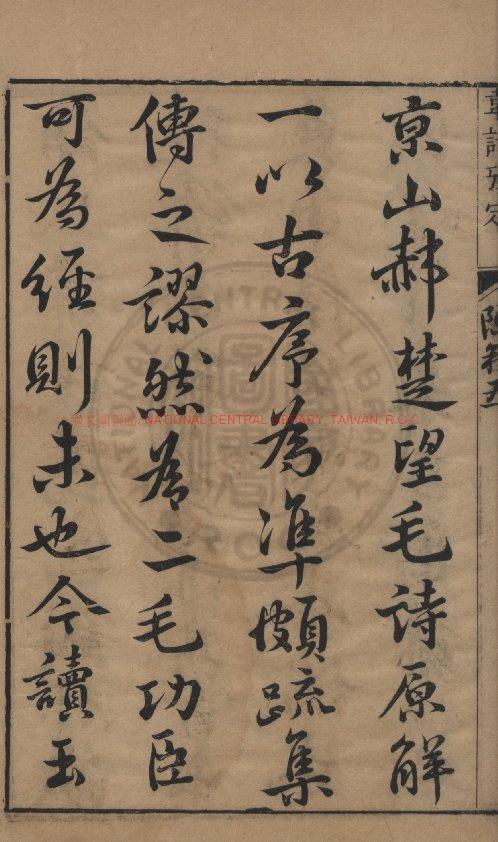 京山郝楚望毛詩原解
一以古序為準頗疏集
傳之謬然為二毛功臣
可為經則未也今讀玉
NATIONAL CENTRAL LIBRARY, TAIWAN, R.O.C.